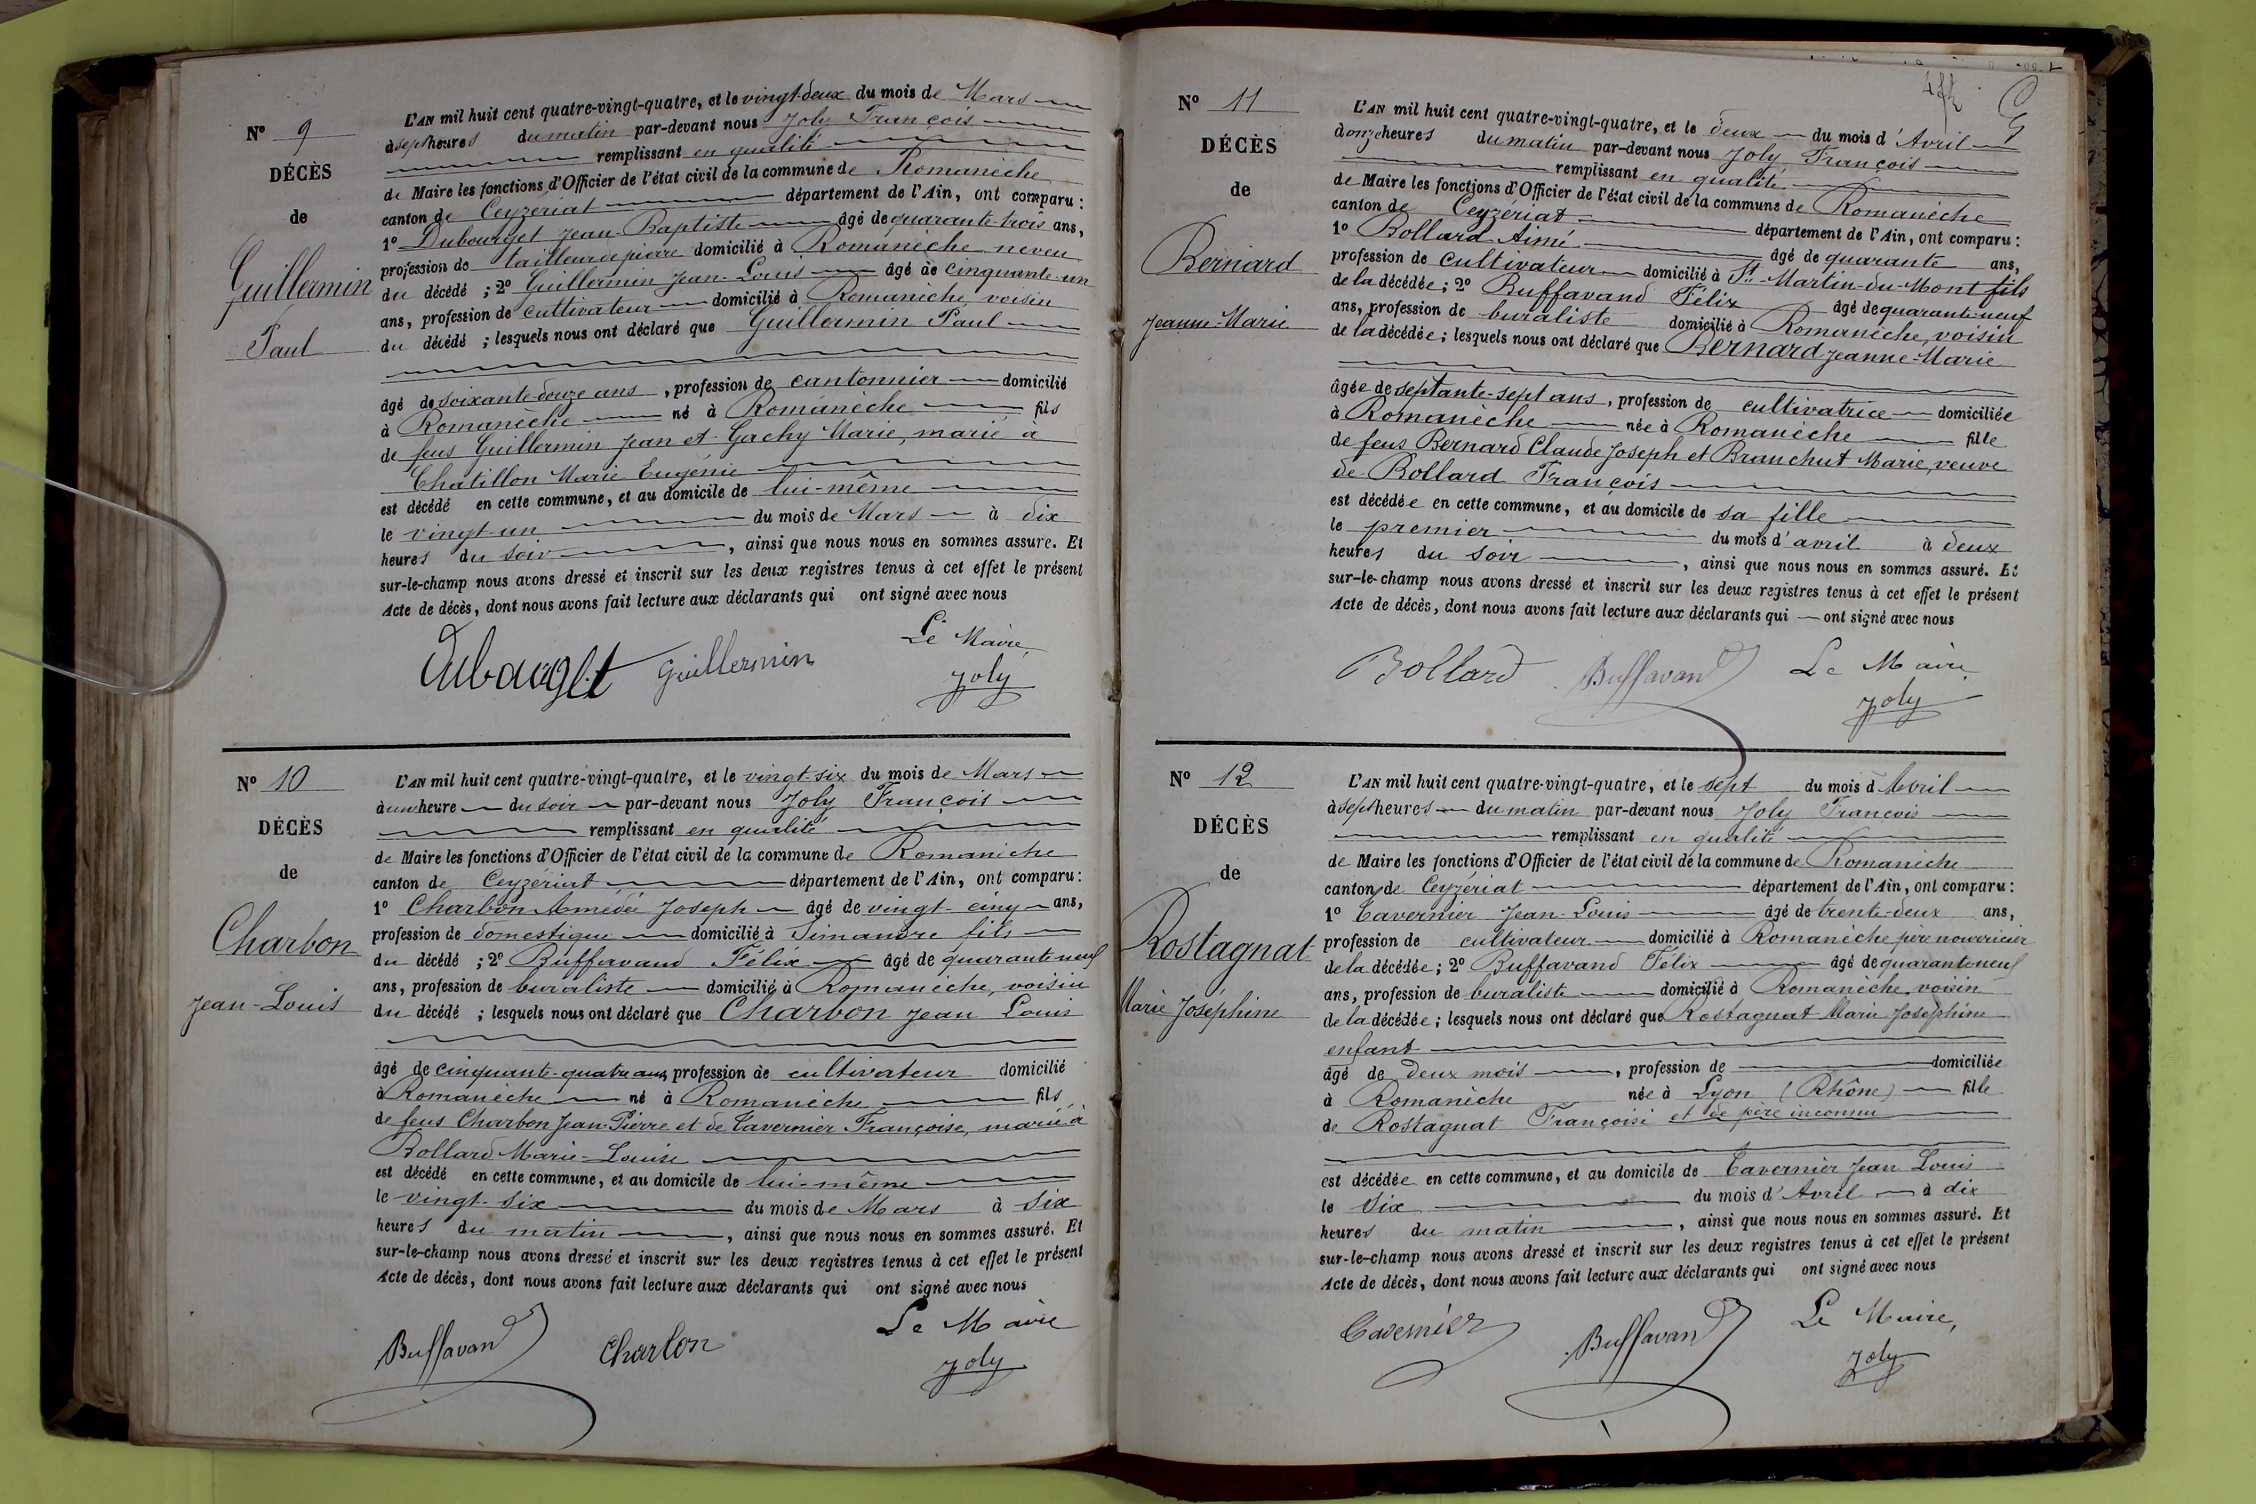 N° 9
DÉCÈS
de
Guillermin
Paul
L'AN mil huit cent quatre-vingt-quatre, et le vingt-deux du mois de Mars
à sept heures du matin par-devant nous Joly François
remplissant en qualité
de Maire les fonctions d'Officier de l'état civil de la commune de Romanèche
canton de Ceyzériat département de l'Ain, ont comparu :
1° Dubourget Jean-Baptiste âgé de quarante-trois ans,
profession de tailleur de pierre domicilié à Romanèche neveu
du décédé ; 2° Guillermin Jean-Louis âgé de cinquante-un
ans, profession de cultivateur domicilié à Romanèche, voisin
du décédé ; lesquels nous ont déclaré que Guillermin Paul
âgé de soixante-douze ans, profession de cantonnier domicilié
à Romanèche né à Romanèche fils
de feus Guillermin Jean et Gachy Marie, marié à
Chatillon Marie Eugénie
est décédé en cette commune, et au domicile de lui-même
le vingt-un du mois de Mars à dix
heures du soir, ainsi que nous nous en sommes assuré. Et
sur-le-champ nous avons dressé et inscrit sur les deux registres tenus à cet effet le présent
Acte de décès, dont nous avons fait lecture aux déclarants qui ont signé avec nous
Dubourget Guillermin Le Maire,
Joly
N° 10
DÉCÈS
de
Charbon
Jean-Louis
L'AN mil huit cent quatre-vingt-quatre, et le vingt-six du mois de Mars
à une heure du soir par-devant nous Joly François
remplissant en qualité
de Maire les fonctions d'Officier de l'état civil de la commune de Romanèche
canton de Ceyzériat département de l'Ain, ont comparu :
1° Charbon Amédée Joseph âgé de vingt-cinq ans,
profession de domestique domicilié à Simandre fils
du décédé ; 2° Buffavand Félix âgé de quarante-neuf
ans, profession de buraliste domicilié à Romanèche, voisin
du décédé ; lesquels nous ont déclaré que Charbon Jean Louis
âgé de cinquante-quatre ans, profession de cultivateur domicilié
à Romanèche né à Romanèche fils
de feus Charbon Jean-Pierre et de Tavernier Françoise, marié à
Bollard Marie-Louise
est décédé en cette commune, et au domicile de lui-même
le vingt-six du mois de Mars à six
heures du matin, ainsi que nous nous en sommes assuré. Et
sur-le-champ nous avons dressé et inscrit sur les deux registres tenus à cet effet le présent
Acte de décès, dont nous avons fait lecture aux déclarants qui ont signé avec nous
Buffavand Charbon Le Maire
Joly
N° 11
DÉCÈS
de
Bernard
Jeanne-Marie
L'AN mil huit cent quatre-vingt-quatre, et le deux du mois d'Avril
à onze heures du matin par-devant nous Joly François
remplissant en qualité
de Maire les fonctions d'Officier de l'état civil de la commune de Romanèche
canton de Ceyzériat département de l'Ain, ont comparu :
1° Bollard Aimé âgé de quarante ans,
profession de cultivateur domicilié à St-Martin-du-Mont fils
de la décédée ; 2° Buffavand Félix âgé de quarante-neuf
ans, profession de buraliste domicilié à Romanèche, voisin
de la décédée ; lesquels nous ont déclaré que Bernard Jeanne-Marie
âgée de septante-sept ans, profession de cultivatrice domiciliée
à Romanèche née à Romanèche fille
de feus Bernard Claude Joseph et Branchut Marie, veuve
de Bollard François
est décédée en cette commune, et au domicile de sa fille
le premier du mois d'avril à deux
heures du soir, ainsi que nous nous en sommes assuré. Et
sur-le-champ nous avons dressé et inscrit sur les deux registres tenus à cet effet le présent
Acte de décès, dont nous avons fait lecture aux déclarants qui ont signé avec nous
Bollard Buffavand Le Maire,
Joly
N° 12
DÉCÈS
de
Rostagnat
Marie Joséphine
L'AN mil huit cent quatre-vingt-quatre, et le sept du mois d'Avril
à sept heures du matin par-devant nous Joly François
remplissant en qualité
de Maire les fonctions d'Officier de l'état civil de la commune de Romanèche
canton de Ceyzériat département de l'Ain, ont comparu :
1° Tavernier Jean-Louis âgé de trente-deux ans,
profession de cultivateur domicilié à Romanèche père nourricier
de la décédée ; 2° Buffavand Félix âgé de quarante-neuf
ans, profession de buraliste domicilié à Romanèche, voisin
de la décédée ; lesquels nous ont déclaré que Rostagnat Marie Joséphine
enfant
âgé de deux mois, profession de domiciliée
à Romanèche née à Lyon (Rhône) fille
de Rostagnat Françoise et de père inconnu
est décédée en cette commune, et au domicile de Tavernier Jean Louis
le six du mois d'Avril à dix
heures du matin, ainsi que nous nous en sommes assuré. Et
sur-le-champ nous avons dressé et inscrit sur les deux registres tenus à cet effet le présent
Acte de décès, dont nous avons fait lecture aux déclarants qui ont signé avec nous
Tavernier Buffavand Le Maire,
Joly